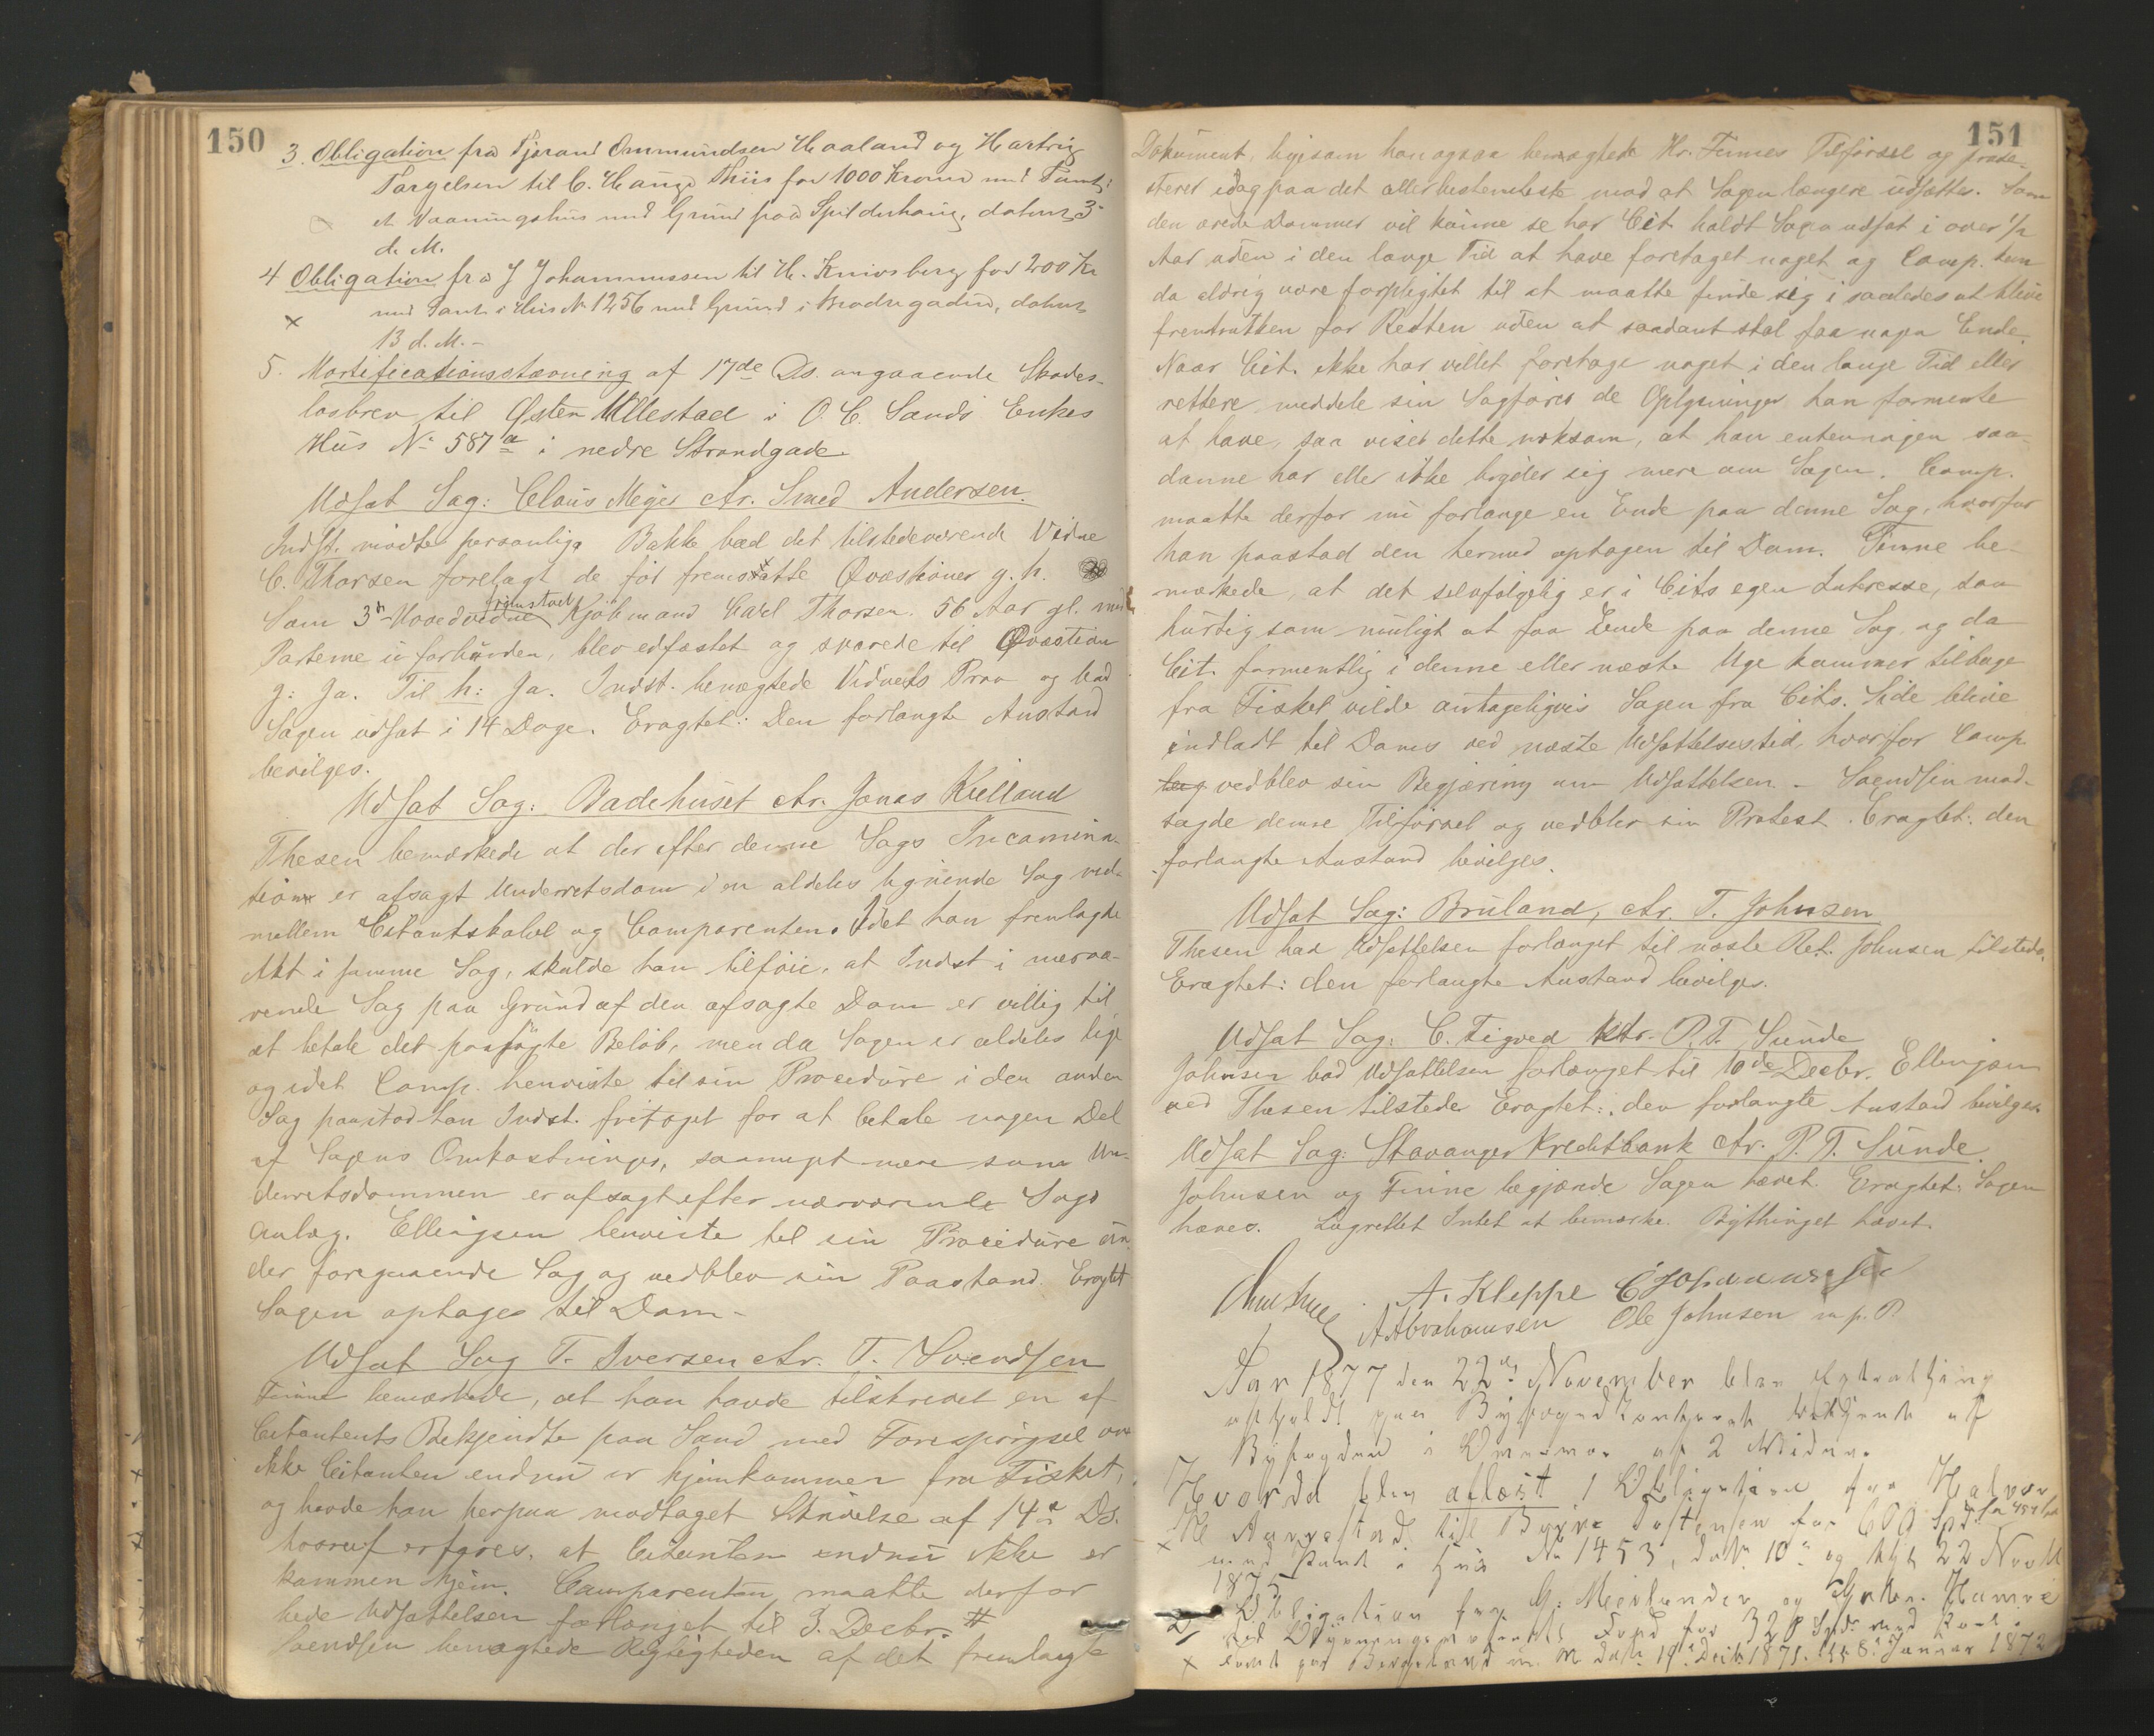 150
3. Obligation fra Tjøran Ommundsen Haaland og Hartvig
Torgelsen til C. Hauge Thiis for 1000 Kroner med Pant i
et Vaaningshus med Grund paa Spilderhaug, dateret 3
d. M.
4 Obligation fra J Johannessen til H. Knivsberg for 200 Kr
med Pant i Hus No 1256 med Grund i Brødregaden, dateret
13 d. M. -
5. Mortificationsstævning af 17de Ds. angaaende Skades-
løsbrev til Østen Ullestad i O. C. Sands Enkes
Hus No 587a i nedre Strandgade.
Udsat Sag: Claus Mejer ctr. Smed Andersen.
Indst. mødte personlig. Bakke bad det tilstedeværende Vidne
C. Thorsen forelagt de før fremsatte Qvæstioner g. h.
Som 3die Hovedvidne fremstod Kjøbmand Carl Thorsen. 56 Aar gl. med
Parterne uforbunden, blev edfæstet og svarede til Qvæstion
g: Ja. Til h: Ja. Indst. benægtede Vidnets Prov og bad
Sagen udsat i 14 Dage. Eragtet: Den forlangte Anstand
bevilges.
Udsat Sag: Badehuset ctr. Jonas Kielland
Thesen bemærkede at der efter denne Sags Incamina-
tion er afsagt Underretsdom i en aldeles lignende Sag imel-
mellem Citantskabet og Comparenten. Idet han fremlagte
Akt i samme Sag, skulde han tilføie, at Indst i nærvæ-
rende Sag paa Grund af den afsagte Dom er villig til
at betale det paasøgte Beløb, men da Sagen er aldeles lige
og idet Comp. henviste til sin Procedure i den anden
Sag paastod han Indst. fritaget for at betale nogen Del
af Sagens Omkostninger, saameget mere som Un-
derretsdommen er afsagt efter nærværende Sags
Anlæg. Ellingsen henviste til sin Procedure un-
der foregaaende Sag og vedblev sin Paastand. Eragtet
Sagen optages til Dom -
Udsat Sag T. Iversen ctr. T. Svendsen
Finne bemærkede, at han havde tilskrevet en af
Citantents Bekjendte paa Sand med Forespørgsel om
ikke Citanten endnu er hjemkommen fra Fisket,
og havde han herpaa modtaget Skrivelse af 14de Ds.
hvoraf erfares, at Citanten endnu ikke er
kommen hjem. Comparenten maatte derfor
bede Udsættelsen forlænget til 3. Decbr. #
Svendsen benægtede Rigtigheden af det fremlagte
151
Dokument, ligesom han ogsaa benægtede Hr. Finnes Tilførsel og prote-
sterer idag paa det allerbestemteste mod at Sagen længere udsættes. Som
den ærede Dommer vil kunne se har Cit. holdt Sagen udsat i over 1/2
Aar uden i den lange Tid at have foretaget noget og Comp. kan
da aldrig være forpligtet til at maatte finde sig i saaledes at blive
fremtrukken for Retten uden at saadant skal faa nogen Ende.
Naar Cit. ikke har villet foretage noget i den lange Tid eller
rettere meddele sin Sagfører de Oplysninger han formente
at have, saa viser dette noksom, at han enten ingen saa-
danne har eller ikke bryder sig mere om Sagen. Comp.
maatte derfor nu forlange en Ende paa denne Sag, hvorfor
han paastod den hermed optagen til Dom. Finne be-
mærkede, at det selvfølgelig er i Cits egen Interesse, saa
hurtig som muligt at faa Ende paa denne Sag, og da
Cit. formentlig i denne eller næste Uge kommer tilbage
fra Fisket vilde antageligvis Sagen fra Cits. Side blive
indladt til Doms ved næste Udsættelsestid, hvorfor Comp.
vedblev sin Begjæring om Udsættelsen. - Svendsen mod-
sagde denne Tilførsel og vedblev sin Protest. Eragtet: den
forlangte Anstand bevilges.
Udsat Sag: Bruland, ctr. T. Johnsen
Thesen bad Udsættelsen forlænget til næste Ret. Johnsen tilstede.
Eragtet: den forlangte Anstand bevilges.
Udsat Sag: C. Tigved ktr. P. T. Sunde
Johnsen bad Udsættelsen forlænget til 10de Decbr. Ellingsen
ved Thesen tilstede Eragtet: den forlangte Anstand bevilges
Udsat Sag: Stavanger Kreditbank ctr. P. T. Sunde.
Johnsen og Finne begjærede Sagen hævet. Eragtet: Sagen
hæves. Lagrettet Intet at bemærke. Bythinget hævet.
A. Kleppe C Johannessen
A Abrahamsen Ole Johnsen m. p. P
Aar 1877 den 22de November blev Extrathing
afholdt paa Byfogedkontoret betjent af
Byfogden i Overvær af 2 Vidner.
Hvorda blev aflæst 1 Obligation fra Halvor
H Aarrestad til Børre Tostensen for 600 Spd.
med Pant i Hus No 1453, dat. 10 og 22 Novbr
1875
2/ Obligation fra G. Meilænder og Hamre
til Opførelsesfond for 320 Spd. med Pant i
Tomt paa Bergeland m. m dat. 19 Decbr. 1871. 8 Januar 1872